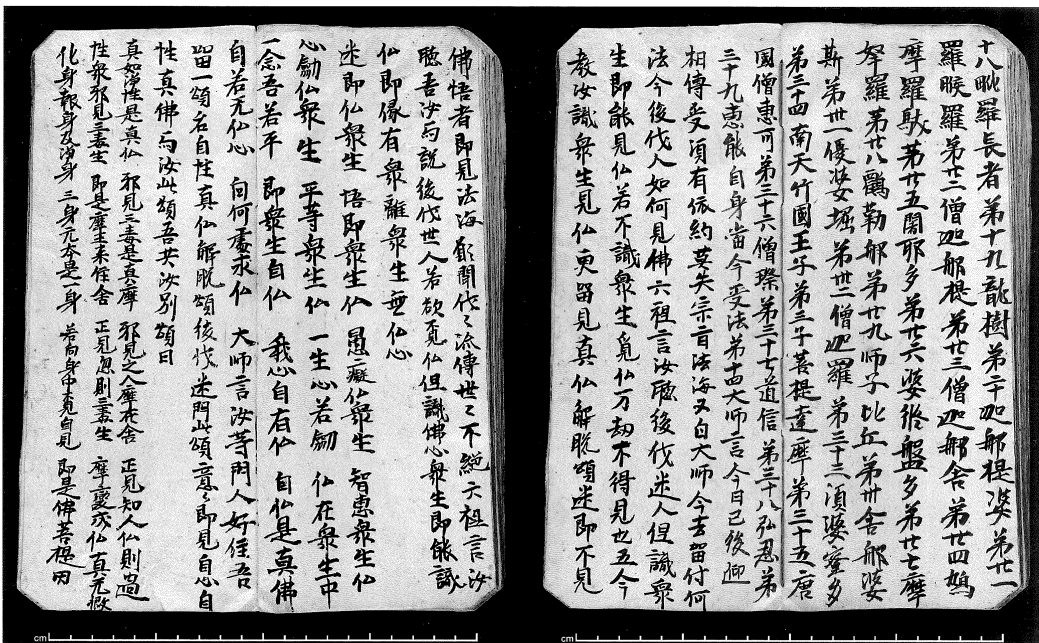 十八毗羅長者第十九龍樹第二十迦那提婆第廿一
羅睺羅第廿二僧迦那提第廿三僧迦那舍第廿四鳩
摩羅馱第廿五闍耶多第廿六婆脩盤多第廿七摩
拏羅第廿八鶴勒那第廿九師子比丘第卅舍那婆
斯第卅一優婆堀第卅二僧迦羅第三十三須婆蜜多
第三十四南天竹國王子第三子菩提達摩第三十五唐
國僧惠可第三十六僧璨第三十七道信第三十八弘忍第
三十九惠能自身當今受法第十四大師言今日已後迎
相傳受須有依約莫失宗旨法海又白大师今去留付何
法今後伐人如何見佛六祖言汝聽後伐迷人但識衆
生即能見仏若不識衆生覓仏万劫不得見也五今
教汝識衆生見仏更留見真仏解脫頌迷即不見
佛悟者即見法海願聞代々流傳世々不絕六祖言汝
聽吾汝与說後伐世人若欲覓仏但識佛心衆生即能識
仏即像有衆離衆生無仏心
迷即仏衆生 悟即衆生仏 愚癡仏衆生 智惠衆生仏
心劍仏衆生 平等衆生仏 一生心若劍 仏在衆生中
一念吾若平 即衆生自仏 我心自有仏 自仏是真佛
自若无仏心 向何處求仏 大師言汝等門人好住吾
留一頌名自性真仏解脫頌後伐迷門此頌意々即見自心自
性真佛与汝此頌吾共汝別頌曰
真如淨性是真仏 邪見三毒是真摩 邪見之人摩在舍 正見知人仏則過
性衆邪見三毒生 即是摩王來住舍 正見忽則三毒生 摩變成仏真无假
化身報身及淨身 三身元本是一身 若向身中覓自見 即是佛菩提因
cm
cm